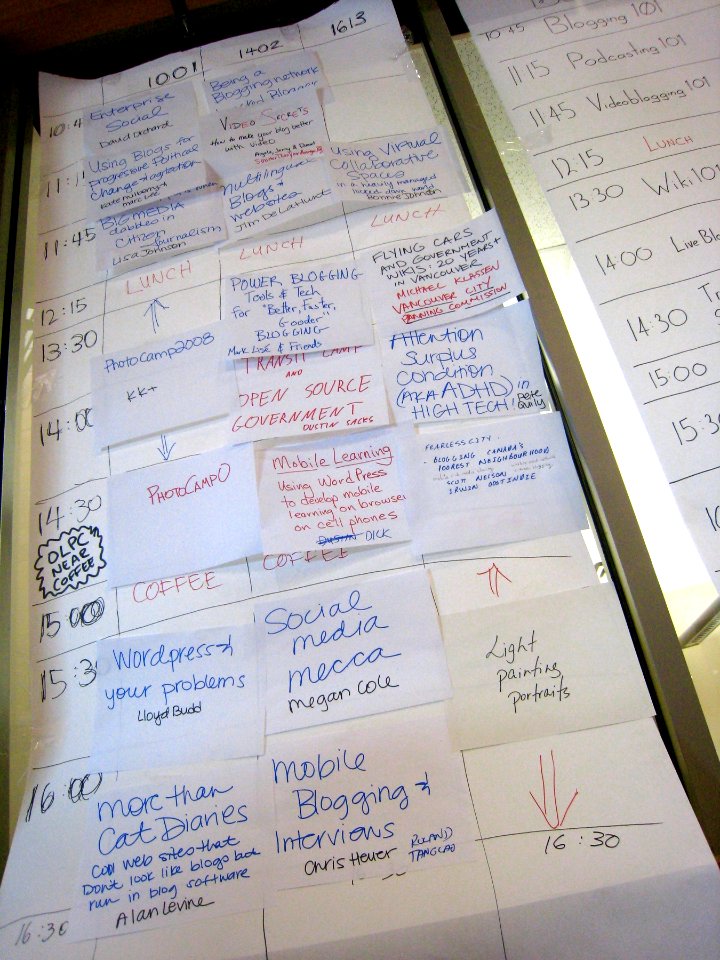 1001
1402
1613
10:4
Enterprise
Social
David Orchard
Being a
Blogging network
11:1
Using Blogs for
progressive Political
Change & agitation
VIDEO SECRETS
How to make your blog better
with video
Using Virtual
Collaborative
Spaces
in a heavily managed
Bonnie Johnson
11:45
BIG MEDIA
dabbles in
Citizen
Journalism
Lisa Johnson
Multilingual
Blogs &
websites
Jim DeLaHunt
LUNCH
LUNCH
LUNCH
12:15
13:30
PhotoCamp2008
KK+
POWER BLOGGING
Tools & Tech
for "Better, Faster,
Gooder"
BLOGGING
& Friends
FLYING CARS
AND GOVERNMENT
WIKIS: 20 YEARS+
IN VANCOUVER
MICHAEL KLASSEN
VANCOUVER CITY
PLANNING COMMISSION
14:00
TRANSIT CAMP
AND
OPEN SOURCE
GOVERNMENT
DUSTIN SACKS
Attention
Surplus
Condition
(AKA ADHD) in
HIGH TECH!
Pete
Quily
14:30
PHOTOCAMPO
Mobile Learning
Using WordPress
to develop mobile
learning on browser
on cell phones
DICK
FEARLESS CITY
- BLOGGING CANADA'S
POOREST NEIGHBOURHOOD
SCOTT NELSON
IRWIN OOSTINDIE
OLPC
NEAR
COFFEE
COFFEE
COFFEE
15:00
15:3
Wordpress &
your problems
Lloyd Budd
Social
media
mecca
megan Cole
Light
painting
portraits
16:00
more than
Cat Diaries
Cool web sites that
Don't look like blogs but
run in blog software
Alan Levine
Mobile
Blogging &
Interviews
Chris Heuer
ROLAND
TANGLAO
16:30
16:30
10:45 Blogging 101
11:15 Podcasting 101
11:45 Videoblogging 101
12:15 LUNCH
13:30 Wiki 101
14:00 Live Blo
14:30
15:00
15:3